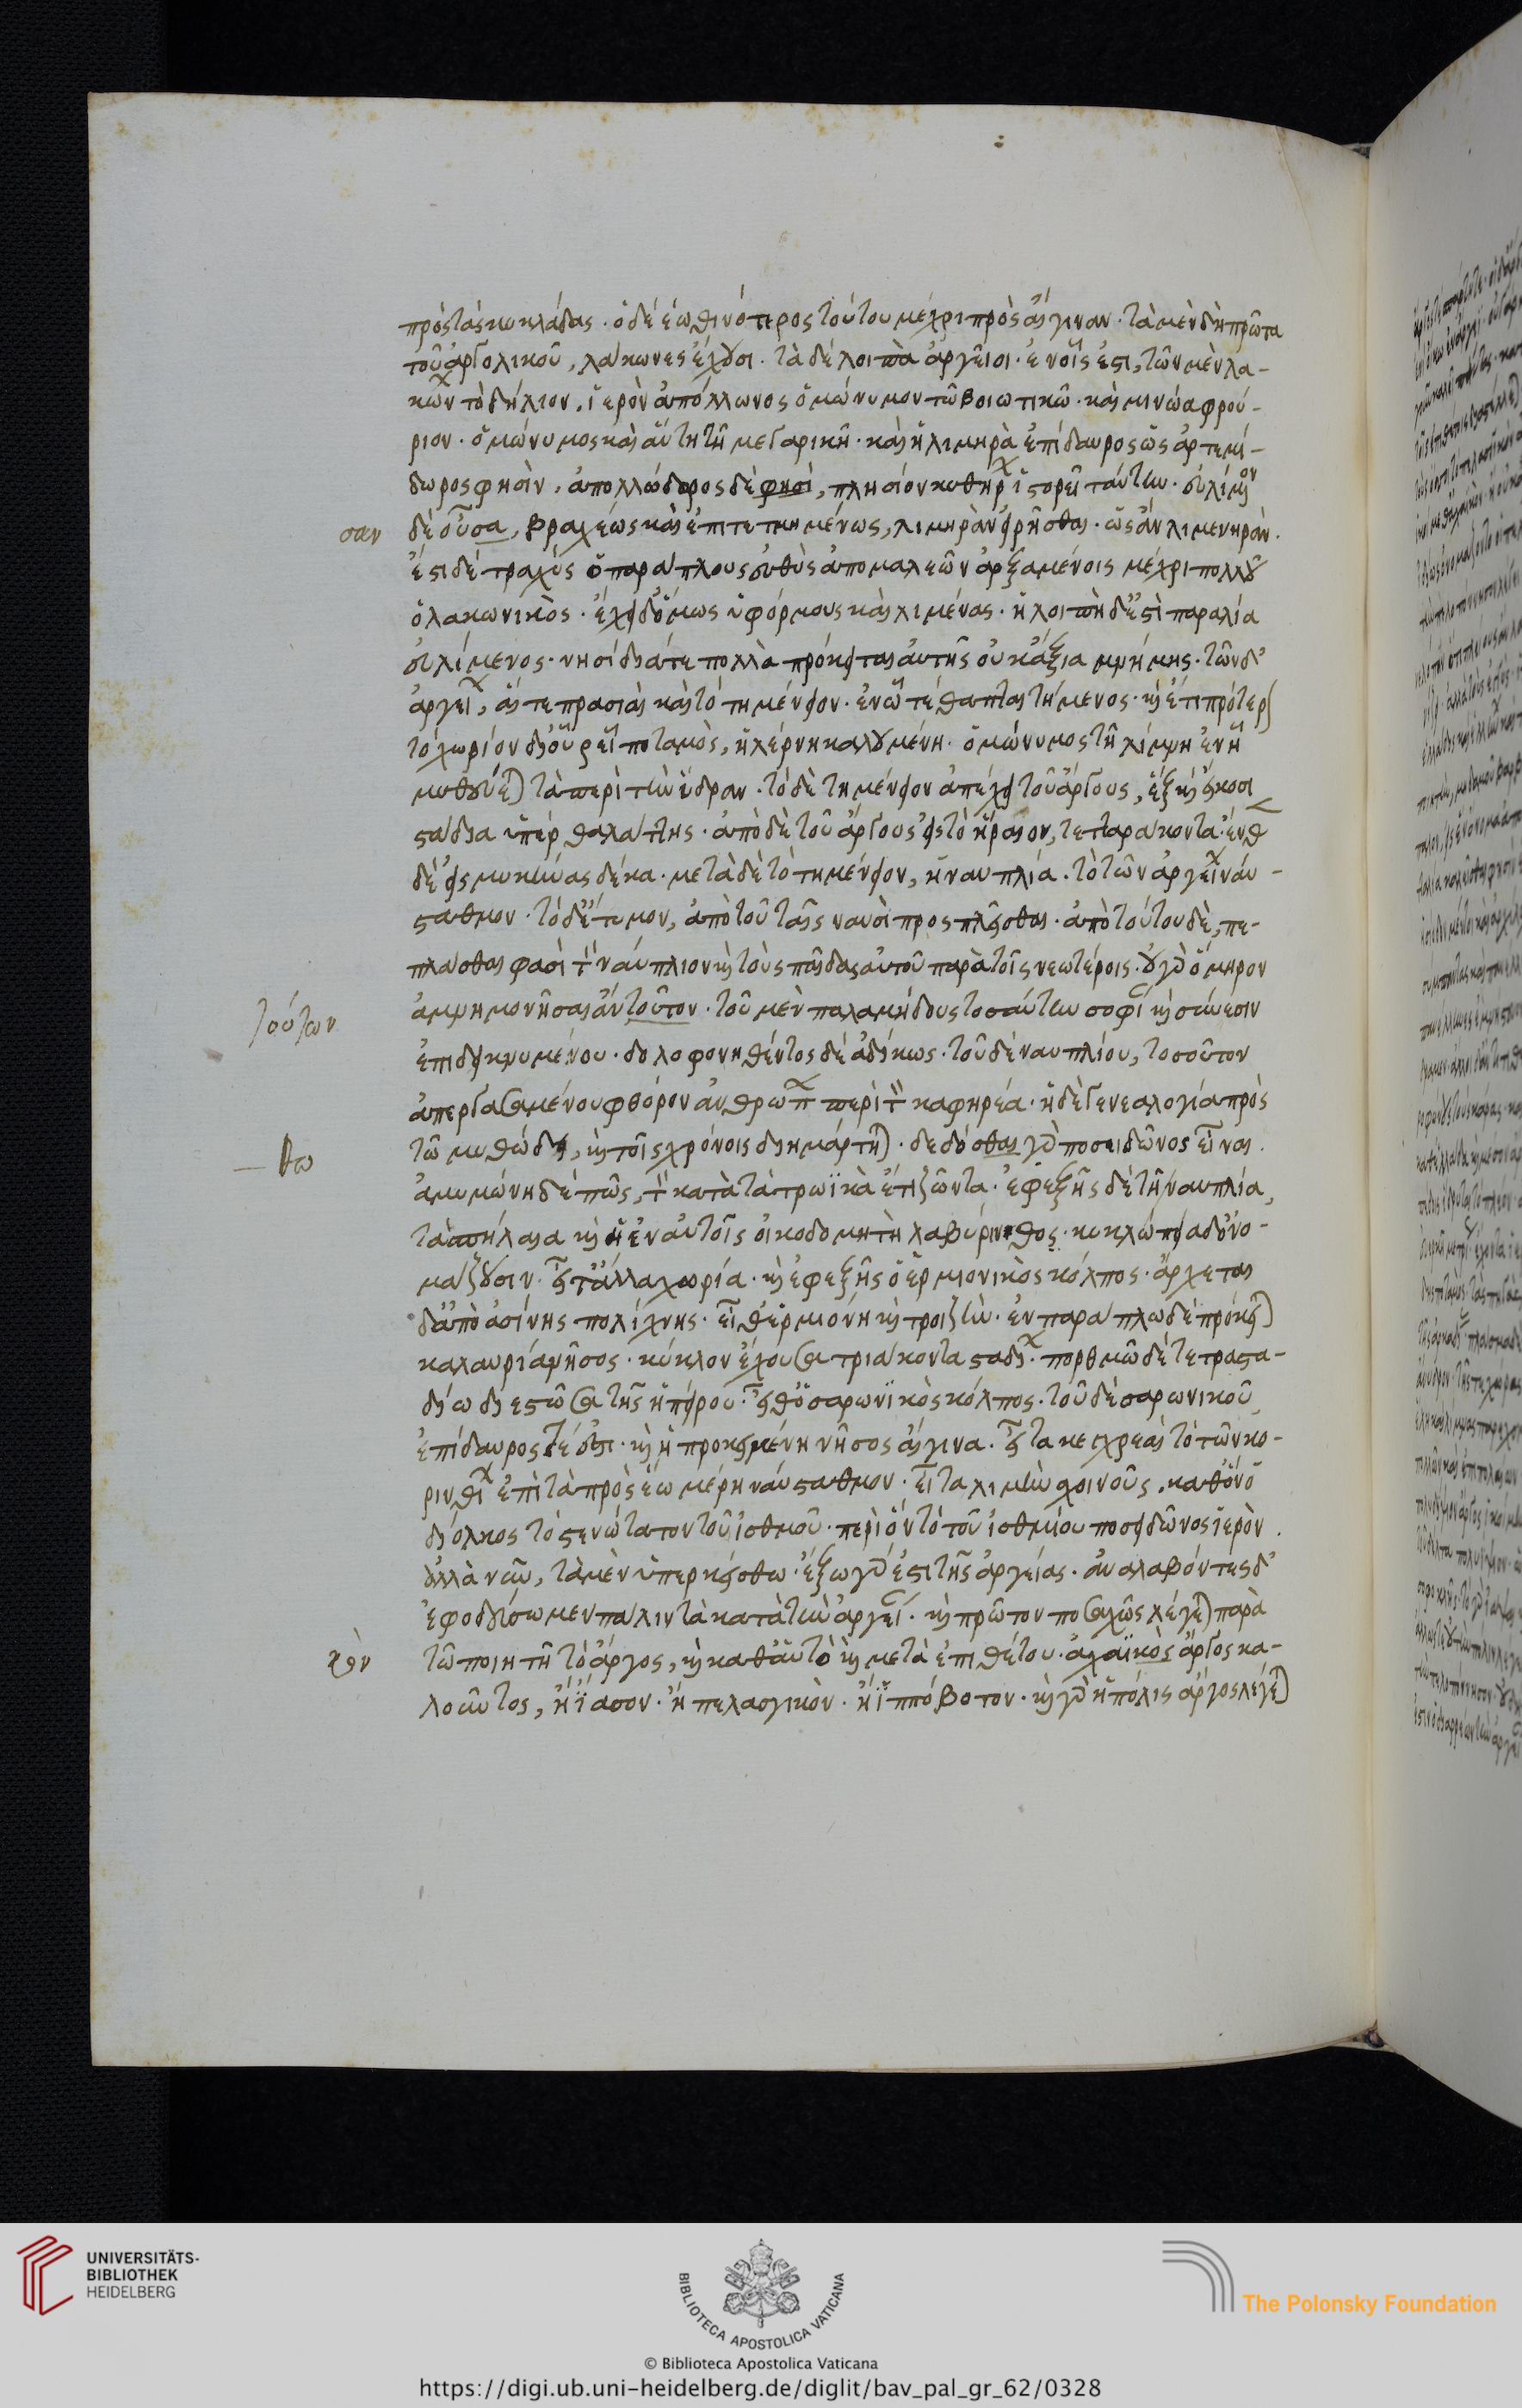 πρὸς τὰς κυκλάδας. ὁ δὲ ἑωθινότερος τούτου μέχρι πρὸς αἴγιναν. τὰ μὲν δὴ πρῶτα
τοῦ ἀργολικοῦ, λάκωνες ἔχουσι. τὰ δὲ λοιπὰ ἀργεῖοι. ἐν οἷς ἐστι, τῶν μὲν λα-
κών τὸ δήλιον, ἱερὸν ἀπόλλωνος ὁμώνυμον τῶ βοιωτικῶ. καὶ μινώα φρού-
ριον. ὁμώνυμος καὶ αὕτη τῆ μεγαρικῆ. καὶ ἡ λιμηρὰ ἐπίδαυρος ὡς ἀρτεμί-
δωρος φησὶν. ἀπολλόδωρος δὲ φησὶ, πλησίον κυθήρ ἱστορεῖ ταύτην. εὐλίμενον
σαν
δὲ οὖσα, βραχέως καὶ ἐπιτετμημένως, λιμηρὰν εἰρῆσθαι. ὡς ἂν λιμενηρὰν.
ἔστι δὲ τραχὺς ὁ παράπλους εὐθὺς ἀπὸ μαλεῶν ἀρξαμένοις μέχρι πολλοῦ
ὁ λακωνικὸς. ἔχει δ' ὅμως ὑφόρμους καὶ λιμένας. ἡ λοιπὴ δ' ἐστὶ παραλία
εὐλίμενος. νησίδιά τε πολλὰ πρόκειται αὐτῆς οὐκ ἄξια μνήμης. τῶν δ'
ἀργεί, αἵ τε πρασιαὶ καὶ τὸ τημένειον. ἐν ὧ τέθαπται τήμενος. καὶ ἔτι πρότερ
τὸ χωρίον δι' οὗ ῥεῖ ποταμὸς, ἡ λέρνη καλουμένη. ὁμώνυμος τῆ λίμνη ἐν ἧ
μυθεύεται τὰ περὶ τὴν ὕδραν. τὸ δὲ τημένειον ἀπέχει τοῦ ἄργους, ἓξ καὶ εἴκοσι
στάδια ὑπὲρ θαλάττης. ἀπὸ δὲ τοῦ ἄργους εἰς τὸ ἥραιον, τετταράκοντα. ἔνθ
δὲ εἰς μυκήνας δέκα. μετὰ δὲ τὸ τημένειον, ἡ ναυπλία. τὸ τῶν ἀργεί ναύ-
σταθμον. τὸ δ' ἔτυμον, ἀπὸ τοῦ ταῖς ναυσὶ προσπλεῖσθαι. ἀπὸ τούτου δὲ, πε-
πλάσθαι φασὶ τὸν ναύπλιον καὶ τοὺς παῖδας αὐτοῦ παρὰ τοῖς νεωτέροις. οὐ γὰρ ὅμηρον
τούτων
ἀμνημονῆσαι ἂν τοῦτον. τοῦ μὲν παλαμήδους τοσαύτην σοφί καὶ σύνεσιν
ἐπιδεικνυμένου. δολοφονηθέντος δὲ ἀδίκως. τοῦ δὲ ναυπλίου, τοσοῦτον
ἀπεργασαμένου φθόρον ἀνθρώπ περὶ τὸν καφηρέα. ἡ δὲ γενεαλογία πρὸς
θω
τῶ μυθώδει, καὶ τοῖς χρόνοις διημάρτηται. δεδόσθαι γὰρ ποσειδῶνος εἶναι.
ἀμυμώνη δὲ πῶς, τὸν κατὰ τὰ τρωϊκὰ ἔτι ζῶντα. ἐφεξῆς δὲ τῆ ναυπλία,
τὰ σπήλαια καὶ ἡ ἐν αὐτοῖς οἰκοδομητὴ λαβύρινθος. κυκλώπεια δ' ὀνο-
μάζουσιν. εἶτ' ἄλλα χωρία. καὶ ἐφεξῆς ὁ ἑρμιονικὸς κόλπος. ἄρχεται
δ' ἀπὸ ἀσίνης πολίχνης. εἶθ' ἑρμιόνη καὶ τροιζὴν. ἐν παράπλω δὲ πρόκειται
καλαυρία νῆσος. κύκλον ἔχουσα τριάκοντα σταδί. πορθμῶ δὲ τετραστα-
δίω διεστῶσα τῆς ἠπείρου. εἶθ' ὁ σαρωνϊκὸς κόλπος. τοῦ δὲ σαρωνικοῦ,
ἐπίδαυρος τέ ἐστι. καὶ ἡ προκειμένη νῆσος αἴγινα. εἶτα κεγχρεαὶ τὸ τῶν κο-
ρινθί ἐπὶ τὰ πρὸς ἕω μέρη ναύσταθμον. εἶτα λιμὴν σχοινοῦς, καθ' ὃν ὁ
δίολκος τὸ στενώτατον τοῦ ἰσθμοῦ. περὶ ὃν τὸ τοῦ ἰσθμίου ποσειδῶνος ἱερὸν.
ἀλλὰ νῦν, τὰ μὲν ὑπερκείσθω. ἔξω γὰρ ἐστι τῆς ἀργείας. ἀναλαβόντες δ'
ἐφοδιάσωμεν πάλιν τὰ κατὰ τὴν ἀργεί. καὶ πρῶτον ποσαχῶς λέγεται παρὰ
χὸν
τῶ ποιητῆ τὸ ἄργος, καὶ καθ' αὑτὸ καὶ μετὰ ἐπιθέτου. ἀχαϊκὸς ἄργος κα-
λοῦντος, ἢ ἴασον. ἢ πελασγικὸν. ἢ ἱππόβοτον. καὶ γὰρ ἡ πόλις ἄργος λέγεται
UNIVERSITÄTS-
BIBLIOTHEK
HEIDELBERG
BIBLIOTECA APOSTOLICA VATICANA
The Polonsky Foundation
© Biblioteca Apostolica Vaticana
https://digi.ub.uni-heidelberg.de/diglit/bav_pal_gr_62/0328